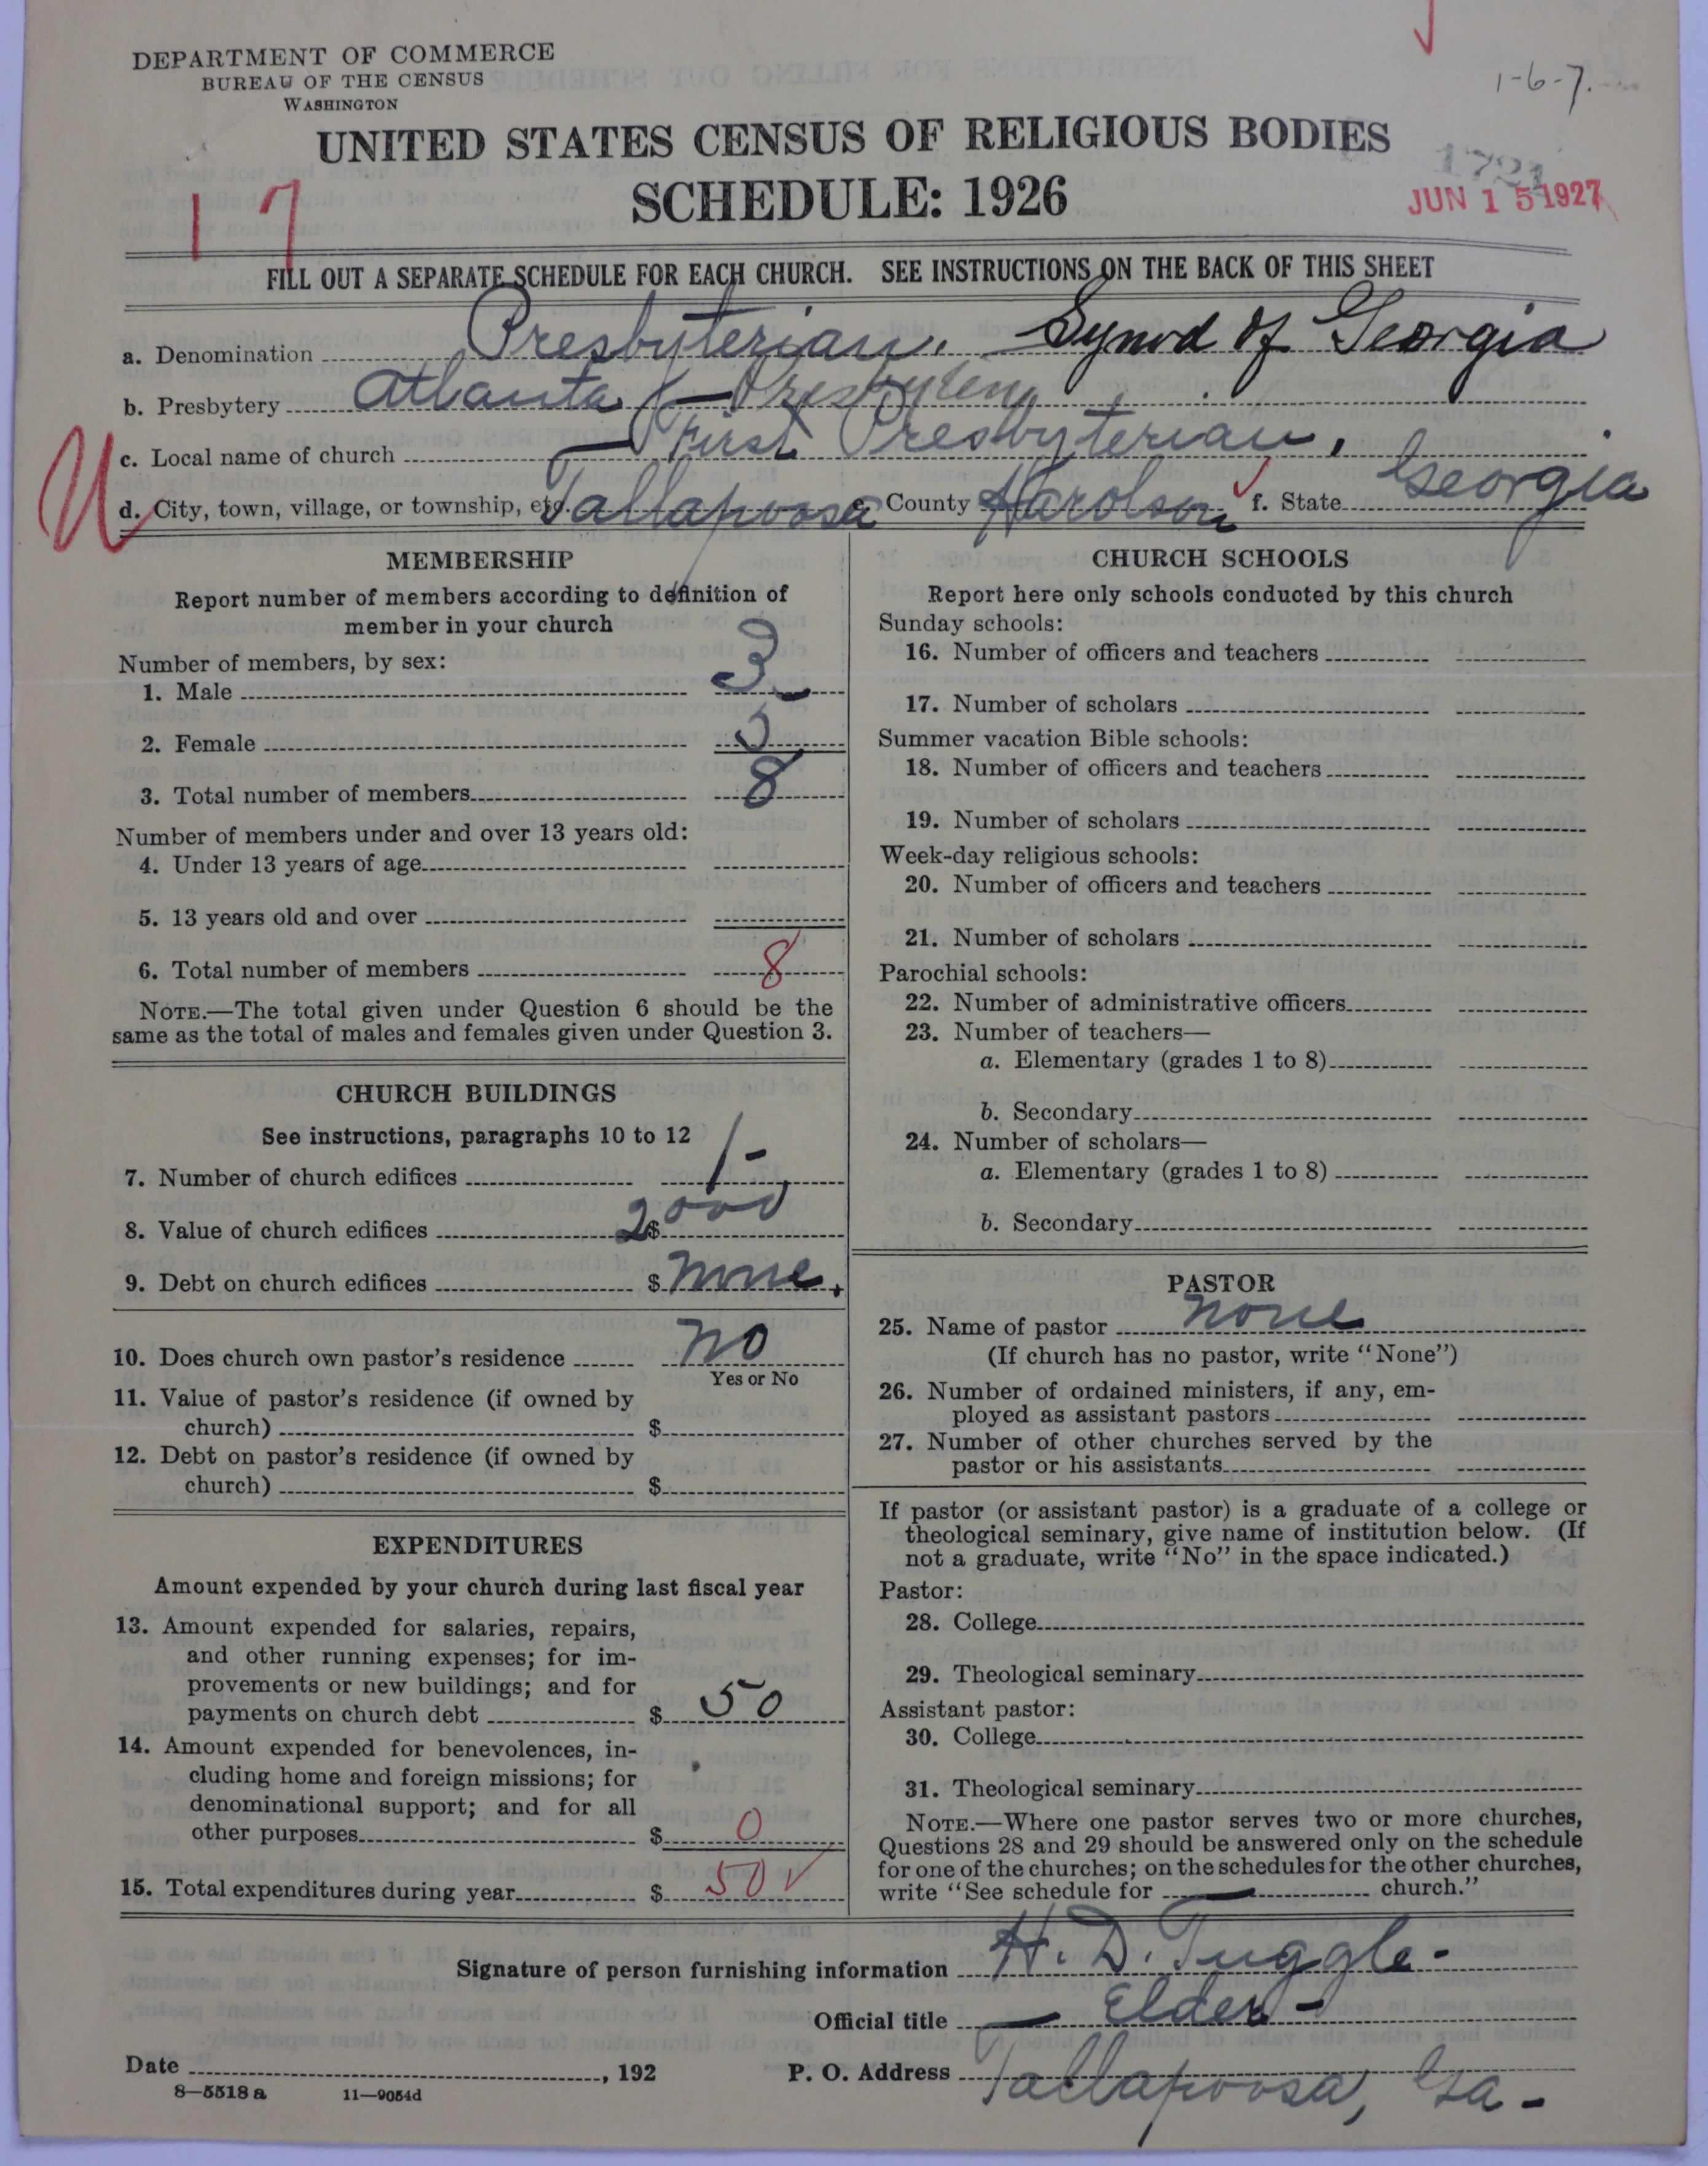 DEPARTMENT OF COMMERCE
BUREAU OF THE CENSUS
WASHINGTON
1-6-7.
UNITED STATES CENSUS OF RELIGIOUS BODIES
SCHEDULE: 1926
1721
JUN 15 1927
17
FILL OUT A SEPARATE SCHEDULE FOR EACH CHURCH. SEE INSTRUCTIONS ON THE BACK OF THIS SHEET
a. Denomination Presbyterian. Synod of Georgia
b. Presbytery Atlanta - Presbytery
c. Local name of church First Presbyterian.
d. City, town, village, or township, etc. Tallapoosa e. County Harolson f. State Georgia
MEMBERSHIP
Report number of members according to definition of
member in your church
Number of members, by sex:
1. Male 3
2. Female 5
3. Total number of members 8
Number of members under and over 13 years old:
4. Under 13 years of age
5. 13 years old and over
6. Total number of members 8
NOTE.—The total given under Question 6 should be the
same as the total of males and females given under Question 3.
CHURCH BUILDINGS
See instructions, paragraphs 10 to 12
7. Number of church edifices 1-
8. Value of church edifices $ 2000
9. Debt on church edifices $ none.
10. Does church own pastor's residence no
Yes or No
11. Value of pastor's residence (if owned by
church) $
12. Debt on pastor's residence (if owned by
church) $
EXPENDITURES
Amount expended by your church during last fiscal year
13. Amount expended for salaries, repairs,
and other running expenses; for im-
provements or new buildings; and for
payments on church debt $ 50
14. Amount expended for benevolences, in-
cluding home and foreign missions; for
denominational support; and for all
other purposes $ 0
15. Total expenditures during year $ 50 ✓
CHURCH SCHOOLS
Report here only schools conducted by this church
Sunday schools:
16. Number of officers and teachers
17. Number of scholars
Summer vacation Bible schools:
18. Number of officers and teachers
19. Number of scholars
Week-day religious schools:
20. Number of officers and teachers
21. Number of scholars
Parochial schools:
22. Number of administrative officers
23. Number of teachers—
a. Elementary (grades 1 to 8)
b. Secondary
24. Number of scholars—
a. Elementary (grades 1 to 8)
b. Secondary
PASTOR
25. Name of pastor none
(If church has no pastor, write "None")
26. Number of ordained ministers, if any, em-
ployed as assistant pastors
27. Number of other churches served by the
pastor or his assistants
If pastor (or assistant pastor) is a graduate of a college or
theological seminary, give name of institution below. (If
not a graduate, write "No" in the space indicated.)
Pastor:
28. College
29. Theological seminary
Assistant pastor:
30. College
31. Theological seminary
NOTE.—Where one pastor serves two or more churches,
Questions 28 and 29 should be answered only on the schedule
for one of the churches; on the schedules for the other churches,
write "See schedule for — church."
Signature of person furnishing information H. D. Tuggle-
Official title — Elder -
Date , 192 P. O. Address Tallapoosa, Ga -
8—5518 a 11—9054d